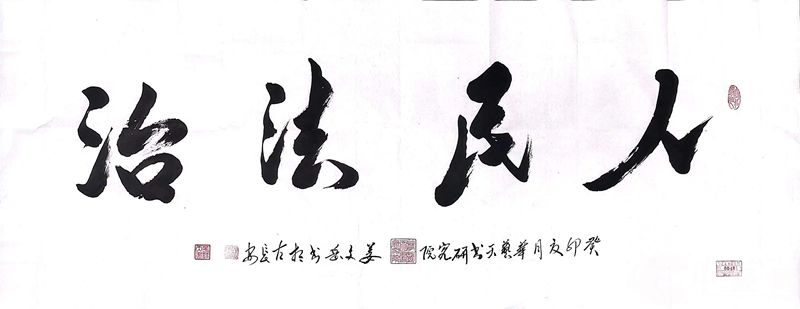 人民法治
癸卯夏月華藝天书研究院 姜文书於古長安